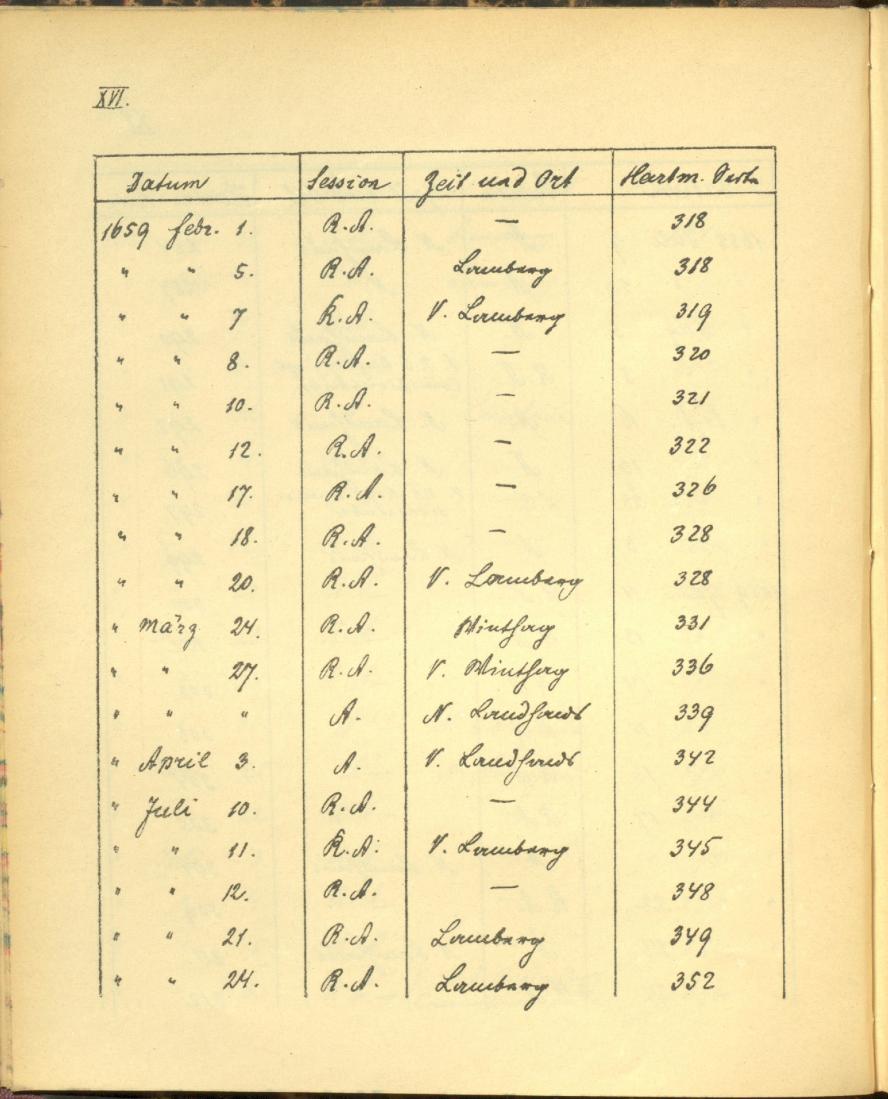 XVI.
Datum Session Zeit und Ort Hartm.
1659 febr. 1. R.A. — 318
" " 5. R.A. Lamberg 318
" " 7 R.A. V. Lamberg 319
" " 8. R.A. — 320
" " 10. R.A. — 321
" " 12. R.A. — 322
" " 17. R.A. — 326
" " 18. R.A. — 328
" " 20. R.A. V. Lamberg 328
" März 24. R.A. Winthag 331
" " 27. R.A. V. Winthag 336
" " " A. N. Landhaus 339
" April 3. A. V. Landhaus 342
" Juli 10. R.A. — 344
" " 11. R.A. V. Lamberg 345
" " 12. R.A. — 348
" " 21. R.A. Lamberg 349
" " 24. R.A. Lamberg 352